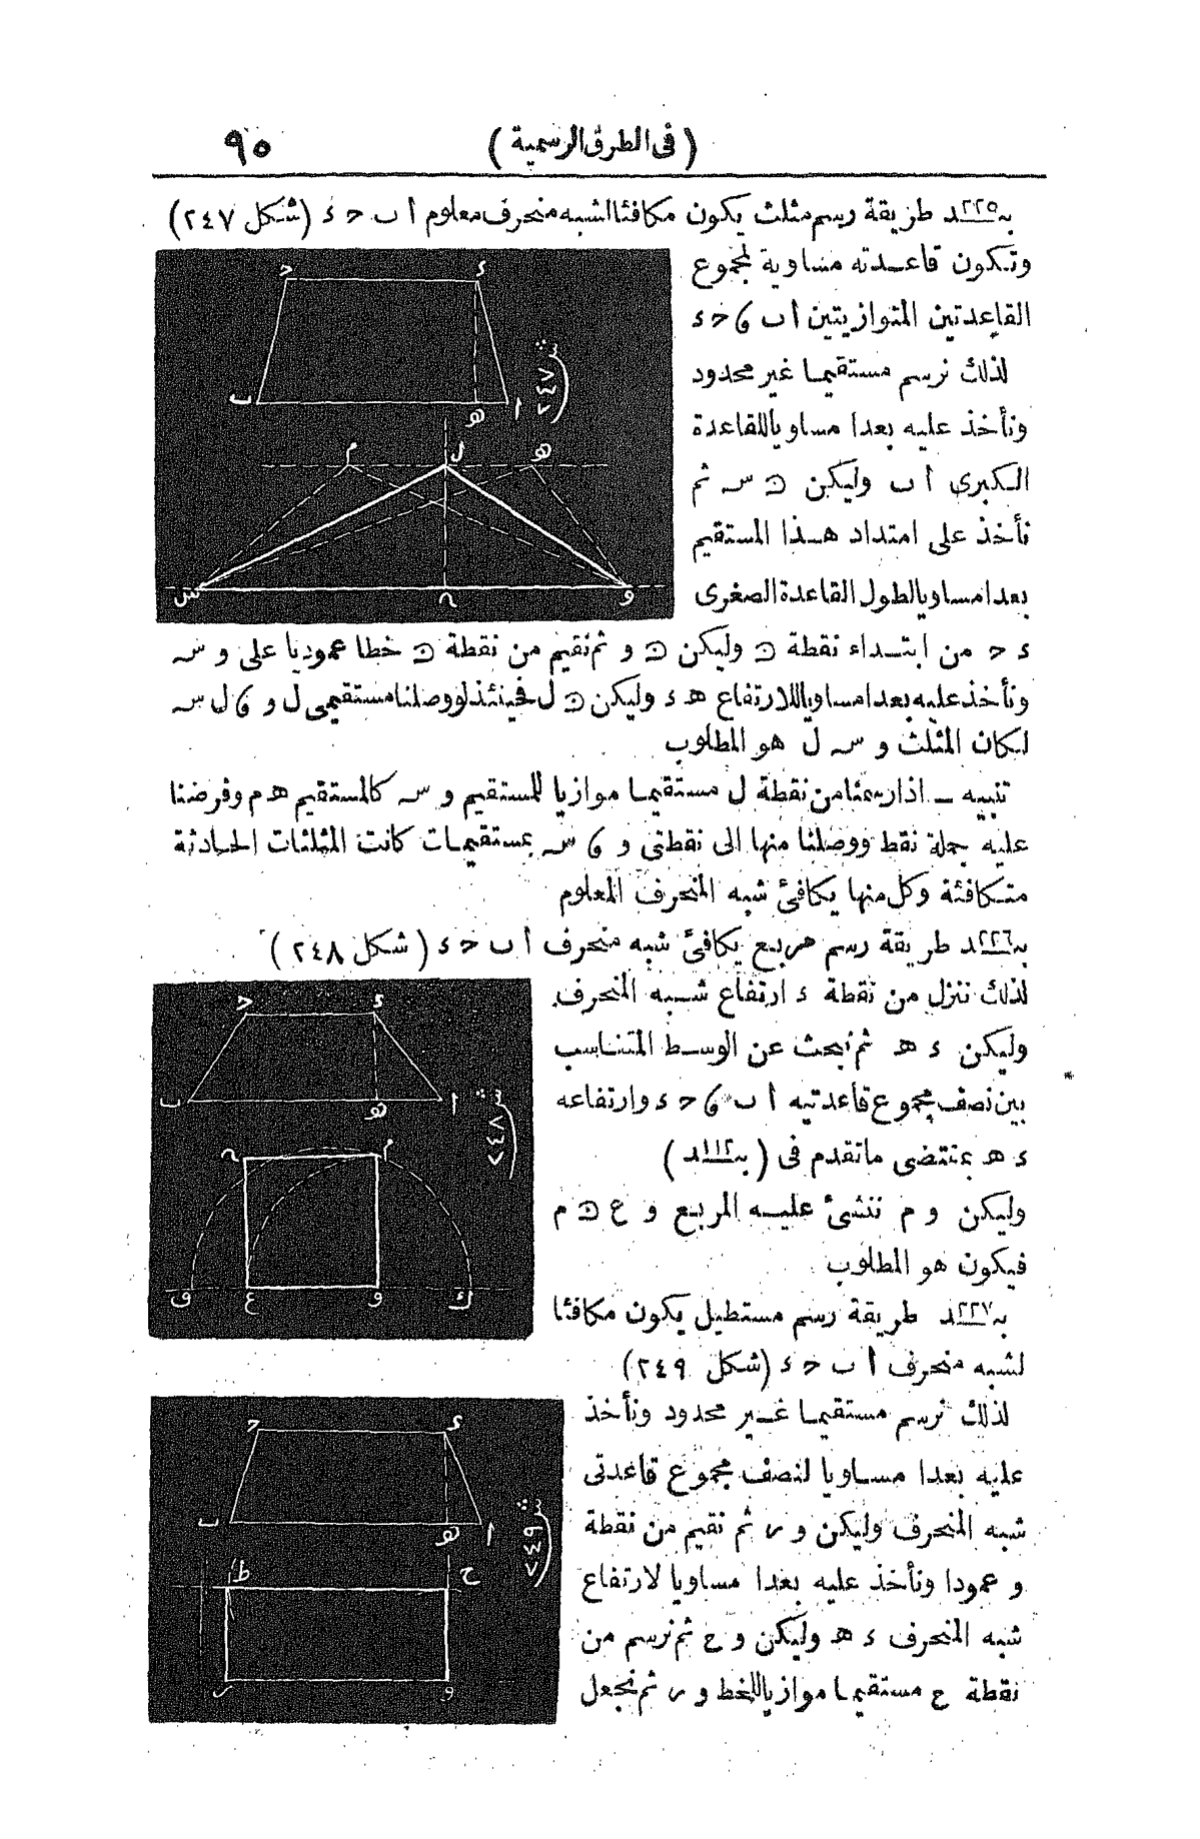 (فى الطرق الرسمية) ٩٥
بـ٢٢٥ـد طريقة رسم مثلث يكون مكافئا لشبه منحرف معلوم ا ب ح ء (شكل ٢٤٧)
وتكون قاعدته مساوية لمجموع
القاعدتين المتوازيتين ا ب و ح ء
لذلك نرسم مستقيما غير محدود
ونأخذ عليه بعدا مساويا للقاعدة
الكبرى ا ب وليكن ن س ثم
نأخذ على امتداد هذا المستقيم
بعدا مساويا لطول القاعدة الصغرى
ء ح من ابتداء نقطة ن وليكن ن و ثم نقيم من نقطة ن خطا عموديا على و س
ونأخذ عليه بعدا مساويا للارتفاع ه ء وليكن ن ل فحينئذ لو وصلنا مستقيمى ل و و ل س
لكان المثلث و س ل هو المطلوب
تنبيه ــ اذا رسمنا من نقطة ل مستقيما موازيا للمستقيم و س كالمستقيم ه م وفرضنا
عليه جملة نقط ووصلنا منها الى نقطتى و و س بمستقيمات كانت المثلثات الحادثة
متكافئة وكل منها يكافئ شبه المنحرف المعلوم
بـ٢٢٦ـد طريقة رسم مربع يكافئ شبه منحرف ا ب ح ء (شكل ٢٤٨)
لذلك ننزل من نقطة ء ارتفاع شبه المنحرف
وليكن ء ه ثم نبحث عن الوسط المتناسب
بين نصف مجموع قاعدتيه ا ب و ح ء وارتفاعه
ء ه بمقتضى ما تقدم فى (بـ١١٢ـد)
وليكن و م ننشئ عليه المربع و ع ن م
فيكون هو المطلوب
بـ٢٢٧ـد طريقة رسم مستطيل يكون مكافئا
لشبه منحرف ا ب ح ء (شكل ٢٤٩)
لذلك نرسم مستقيما غير محدود ونأخذ
عليه بعدا مساويا لنصف مجموع قاعدتى
شبه المنحرف وليكن و ر ثم نقيم من نقطة
و عمودا ونأخذ عليه بعدا مساويا لارتفاع
شبه المنحرف ء ه وليكن و ح ثم نرسم من
نقطة ح مستقيما موازيا للخط و ر ثم نجعل
ح ء
ش ٢٤٧
ب ه ا
م ل ه
س ن و
ح ء
ب ه ا
ش ٢٤٨
ن م
ق ع و ك
ح ء
ب ه ا
ش ٢٤٩
ط ح
ر و